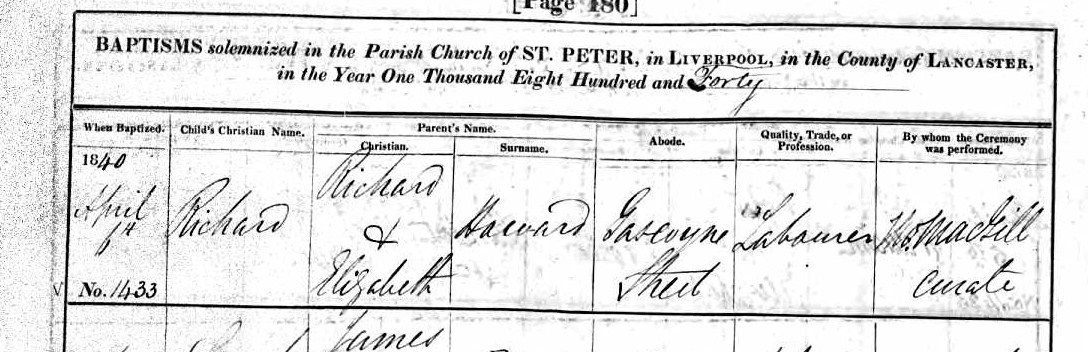 [Page 180]
BAPTISMS solemnized in the Parish Church of ST. PETER, in LIVERPOOL, in the County of LANCASTER,
in the Year One Thousand Eight Hundred and Forty
When Baptized. Child's Christian Name. Parent's Name. Abode. Quality, Trade, or Profession. By whom the Ceremony was performed.
Christian. Surname.
1840
April
6th
No. 1433
Richard
Richard
&
Elizabeth
Haward
Gascoyne
Street
Labourer
Thos MacGill
Curate
James